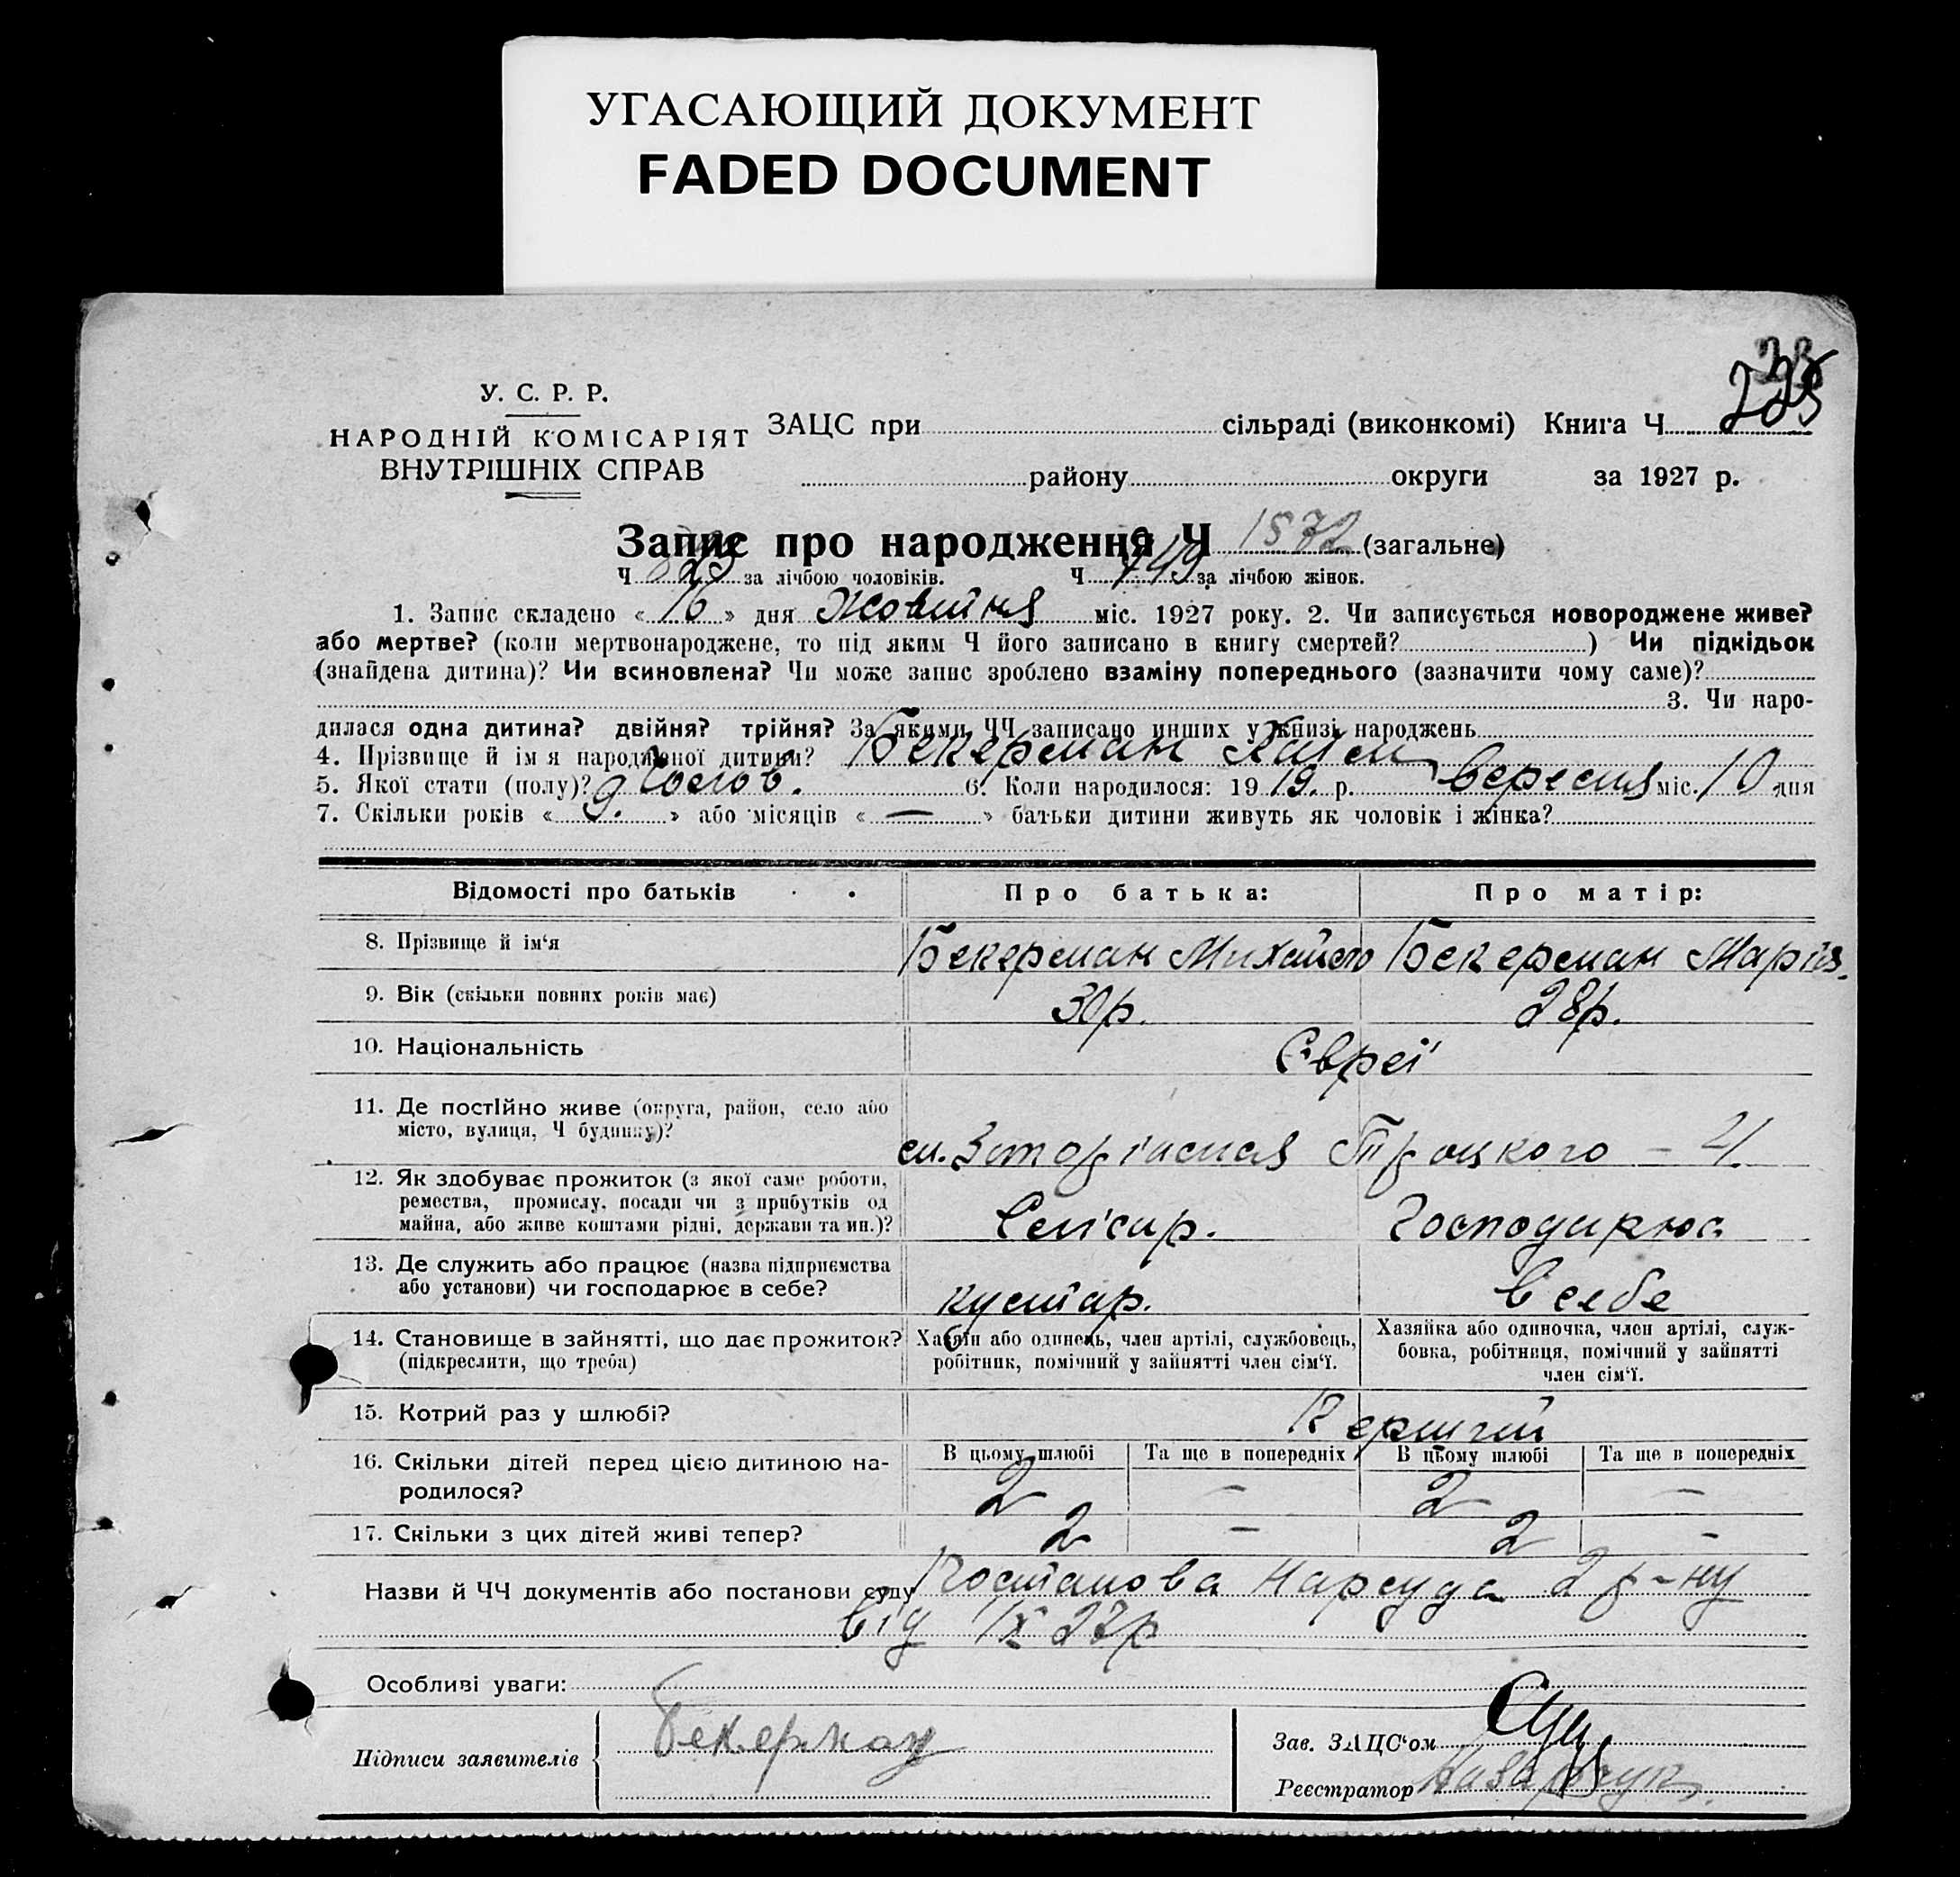 УГАСАЮЩИЙ ДОКУМЕНТ
FADED DOCUMENT
У. С. Р. Р.
НАРОДНІЙ КОМІСАРІЯТ
ВНУТРІШНІХ СПРАВ
ЗАЦС при сільраді (виконкомі) Книга Ч
району округи за 1927 р.
Запис про народження Ч 1572 (загальне)
Ч 823 за лічбою чоловіків. Ч 749 за лічбою жінок.
1. Запис складено « 16 » дня Жовтня міс. 1927 року. 2. Чи записується новороджене живе?
або мертве? (коли мертвонароджене, то під яким Ч його записано в книгу смертей? ) Чи підкідьок
(знайдена дитина)? Чи всиновлена? Чи може запис зроблено взаміну попереднього (зазначити чому саме)?
3. Чи наро-
дилася одна дитина? двійня? трійня? За якими ЧЧ записано инших у книзі народжень
4. Прізвище й ім'я народженої дитини? Бекерман
5. Якої стати (полу)? Чолов. 6. Коли народилося: 19 19. р. Вересня міс. 10 дня
7. Скільки років « 9. » або місяців « — » батьки дитини живуть як чоловік і жінка?
Відомості про батьків
Про батька:
Про матір:
8. Прізвище й ім'я
Бекерман Михайло
Бекерман Марія.
9. Вік (скільки повних років має)
30р.
28р.
10. Національність
Євреї
11. Де постійно живе (округа, район, село або
місто, вулиця, Ч будинку)?
Троцкого
12. Як здобуває прожиток (з якої саме роботи,
ремества, промислу, посади чи з прибутків од
майна, або живе коштами рідні, держави та ин.)?
Господарює
13. Де служить або працює (назва підприємства
або установи) чи господарює в себе?
кустар.
в себе
14. Становище в зайнятті, що дає прожиток?
(підкреслити, що треба)
Хазяїн або одинець, член артілі, службовець,
робітник, помічний у зайнятті член сім'ї.
Хазяйка або одиночка, член артілі, служ-
бовка, робітниця, помічний у зайнятті
член сім'ї.
15. Котрий раз у шлюбі?
Перший
В цьому шлюбі
Та ще в попередніх
В цьому шлюбі
Та ще в попередніх
16. Скільки дітей перед цією дитиною на-
родилося?
2 — 2 —
17. Скільки з цих дітей живі тепер?
2 — 2 —
Назви й ЧЧ документів або постанови суду Постанова Нарсуда 2 р-ну
від 1/X 27р
Особливі уваги:
Підписи заявителів
Бекерман
Зав. ЗАЦС'ом
Реєстратор Назарчук